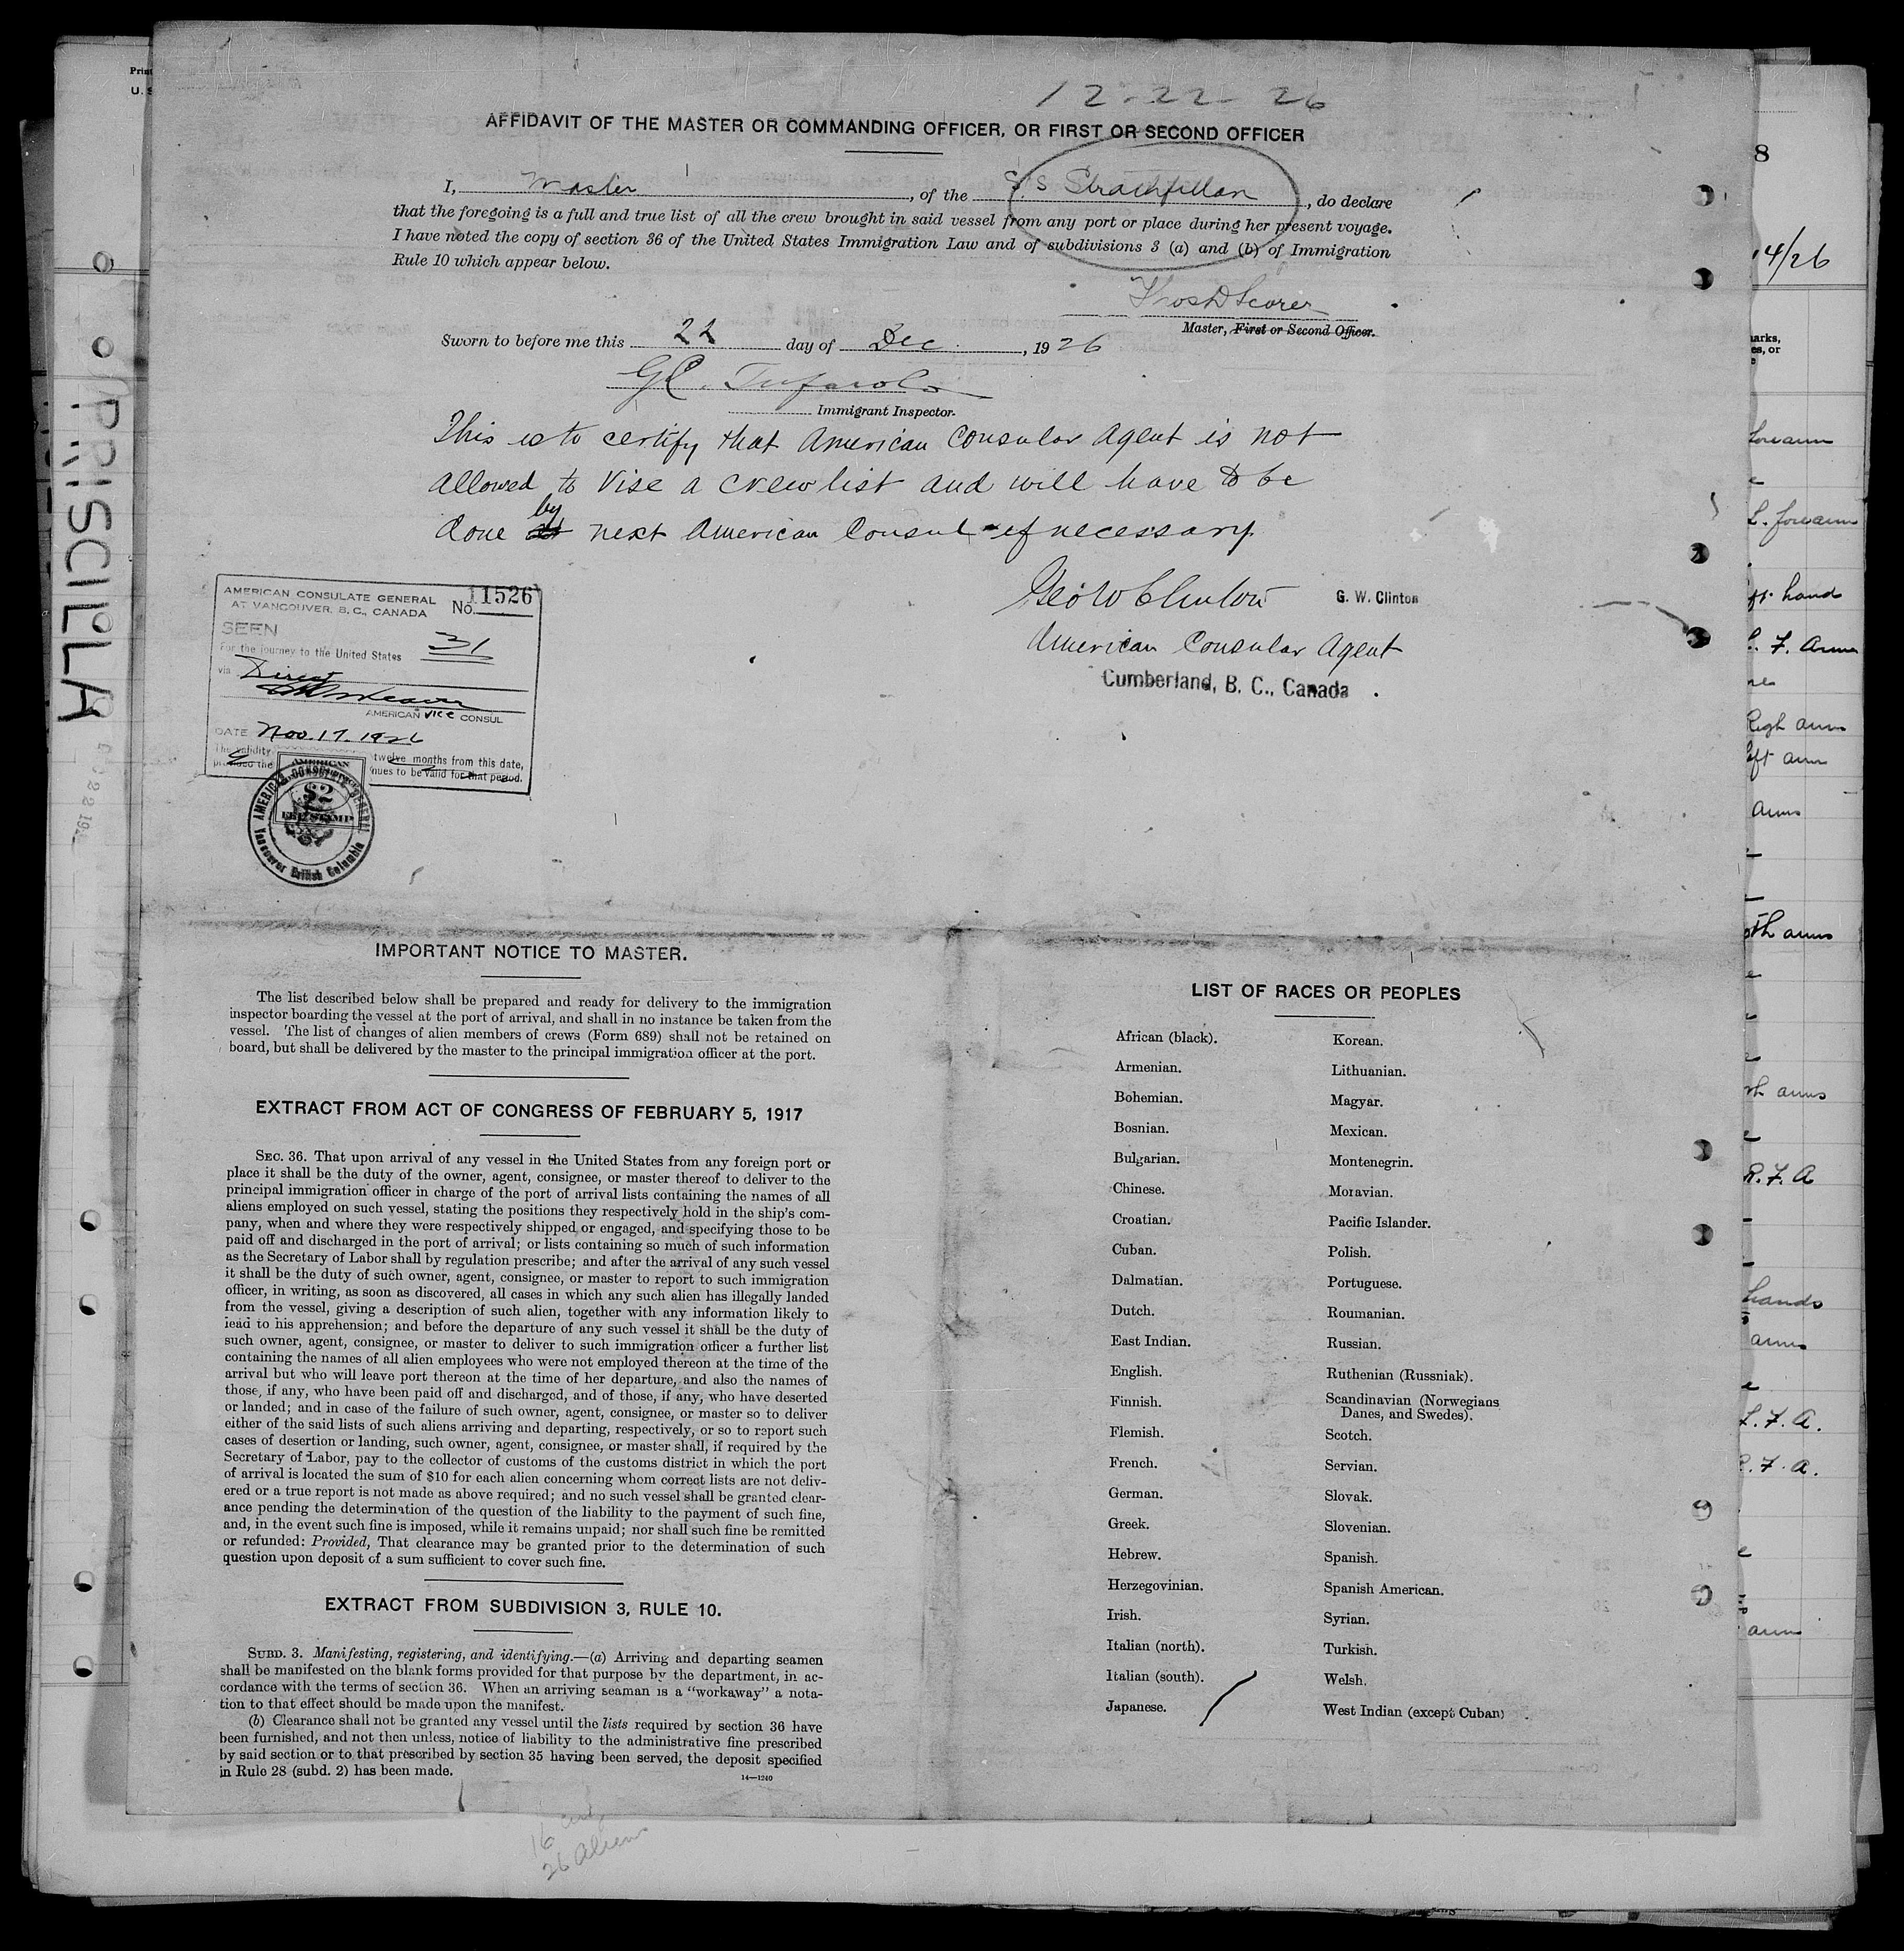 12-22-26
AFFIDAVIT OF THE MASTER OR COMMANDING OFFICER, OR FIRST OR SECOND OFFICER
I, Master, of the S.S Strathfillan, do declare
that the foregoing is a full and true list of all the crew brought in said vessel from any port or place during her present voyage.
I have noted the copy of section 36 of the United States Immigration Law and of subdivisions 3 (a) and (b) of Immigration
Rule 10 which appear below.
Master, First or Second Officer.
Sworn to before me this 22 day of Dec., 1926
Immigrant Inspector.
This is to certify that American Consular Agent is not
allowed to Vise a crew list and will have to be
done by next American Consul if necessary.
Geo W Clinton G. W. Clinton
American Consular Agent
Cumberland, B. C., Canada
AMERICAN CONSULATE GENERAL
AT VANCOUVER, B. C., CANADA No. 11526
SEEN
For the journey to the United States 31
via Direct
AMERICAN Vice CONSUL
DATE Nov. 17. 1926
The validity twelve months from this date,
provided the nues to be valid for that period.
AMERICAN
$2
FEE STAMP
AMERICAN CONSULATE GENERAL
Vancouver British Columbia
IMPORTANT NOTICE TO MASTER.
The list described below shall be prepared and ready for delivery to the immigration
inspector boarding the vessel at the port of arrival, and shall in no instance be taken from the
vessel. The list of changes of alien members of crews (Form 689) shall not be retained on
board, but shall be delivered by the master to the principal immigration officer at the port.
EXTRACT FROM ACT OF CONGRESS OF FEBRUARY 5, 1917
SEC. 36. That upon arrival of any vessel in the United States from any foreign port or
place it shall be the duty of the owner, agent, consignee, or master thereof to deliver to the
principal immigration officer in charge of the port of arrival lists containing the names of all
aliens employed on such vessel, stating the positions they respectively hold in the ship's com-
pany, when and where they were respectively shipped or engaged, and specifying those to be
paid off and discharged in the port of arrival; or lists containing so much of such information
as the Secretary of Labor shall by regulation prescribe; and after the arrival of any such vessel
it shall be the duty of such owner, agent, consignee, or master to report to such immigration
officer, in writing, as soon as discovered, all cases in which any such alien has illegally landed
from the vessel, giving a description of such alien, together with any information likely to
lead to his apprehension; and before the departure of any such vessel it shall be the duty of
such owner, agent, consignee, or master to deliver to such immigration officer a further list
containing the names of all alien employees who were not employed thereon at the time of the
arrival but who will leave port thereon at the time of her departure, and also the names of
those, if any, who have been paid off and discharged, and of those, if any, who have deserted
or landed; and in case of the failure of such owner, agent, consignee, or master so to deliver
either of the said lists of such aliens arriving and departing, respectively, or so to report such
cases of desertion or landing, such owner, agent, consignee, or master shall, if required by the
Secretary of Labor, pay to the collector of customs of the customs district in which the port
of arrival is located the sum of $10 for each alien concerning whom correct lists are not deliv-
ered or a true report is not made as above required; and no such vessel shall be granted clear-
ance pending the determination of the question of the liability to the payment of such fine,
and, in the event such fine is imposed, while it remains unpaid; nor shall such fine be remitted
or refunded: Provided, That clearance may be granted prior to the determination of such
question upon deposit of a sum sufficient to cover such fine.
EXTRACT FROM SUBDIVISION 3, RULE 10.
SUBD. 3. Manifesting, registering, and identifying.—(a) Arriving and departing seamen
shall be manifested on the blank forms provided for that purpose by the department, in ac-
cordance with the terms of section 36. When an arriving seaman is a "workaway" a nota-
tion to that effect should be made upon the manifest.
(b) Clearance shall not be granted any vessel until the lists required by section 36 have
been furnished, and not then unless, notice of liability to the administrative fine prescribed
by said section or to that prescribed by section 35 having been served, the deposit specified
in Rule 28 (subd. 2) has been made.
14—1240
LIST OF RACES OR PEOPLES
African (black).
Armenian.
Bohemian.
Bosnian.
Bulgarian.
Chinese.
Croatian.
Cuban.
Dalmatian.
Dutch.
East Indian.
English.
Finnish.
Flemish.
French.
German.
Greek.
Hebrew.
Herzegovinian.
Irish.
Italian (north).
Italian (south).
Japanese.
Korean.
Lithuanian.
Magyar.
Mexican.
Montenegrin.
Moravian.
Pacific Islander.
Polish.
Portuguese.
Roumanian.
Russian.
Ruthenian (Russniak).
Scandinavian (Norwegians
Danes, and Swedes).
Scotch.
Servian.
Slovak.
Slovenian.
Spanish.
Spanish American.
Syrian.
Turkish.
Welsh.
West Indian (except Cuban)
16
26 Aliens
PRISCILLA
8
14/26
L. forearm
hand
Righ arm
arm
arms
arms
arms
R. F. A
hands
arms
L. F. A.
R. F. A.
arm